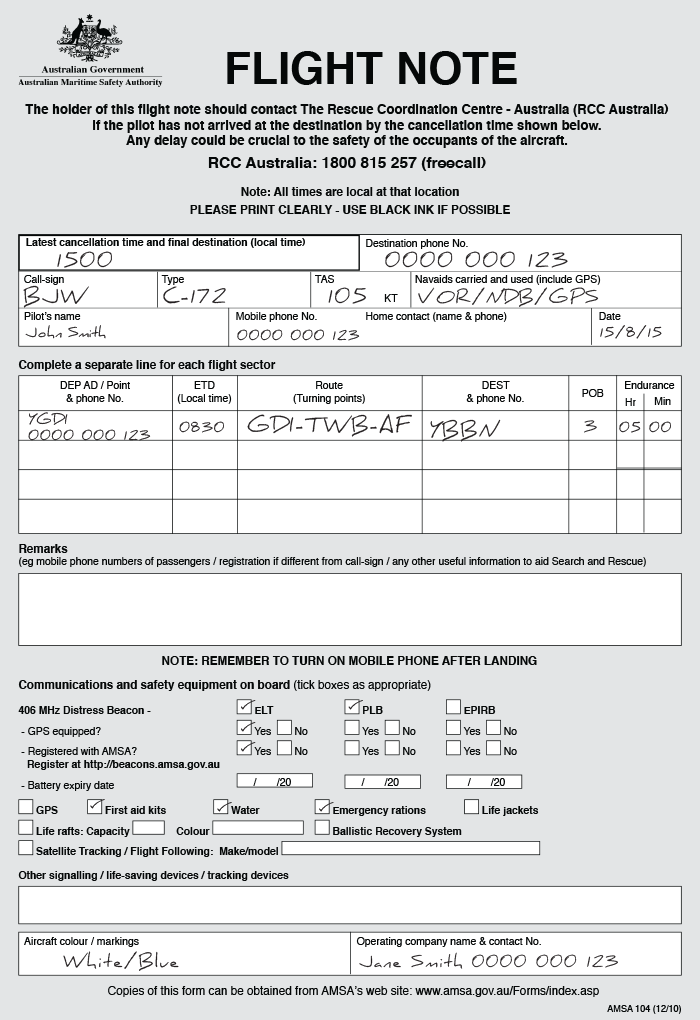 Australian Government
Australian Maritime Safety Authority
FLIGHT NOTE
The holder of this flight note should contact The Rescue Coordination Centre - Australia (RCC Australia)
if the pilot has not arrived at the destination by the cancellation time shown below.
Any delay could be crucial to the safety of the occupants of the aircraft.
RCC Australia: 1800 815 257 (freecall)
Note: All times are local at that location
PLEASE PRINT CLEARLY - USE BLACK INK IF POSSIBLE
Latest cancellation time and final destination (local time) Destination phone No.
1500 0000 000 123
Call-sign Type TAS Navaids carried and used (include GPS)
BJW C-172 105 KT VOR/NDB/GPS
Pilot's name Mobile phone No. Home contact (name & phone) Date
John Smith 0000 000 123 15/8/15
Complete a separate line for each flight sector
DEP AD / Point ETD Route DEST POB Endurance
& phone No. (Local time) (Turning points) & phone No. Hr Min
YGDI
0000 000 123 0830 GDI-TWB-AF YBBN 3 05 00
Remarks
(eg mobile phone numbers of passengers / registration if different from call-sign / any other useful information to aid Search and Rescue)
NOTE: REMEMBER TO TURN ON MOBILE PHONE AFTER LANDING
Communications and safety equipment on board (tick boxes as appropriate)
406 MHz Distress Beacon - ELT PLB EPIRB
- GPS equipped? Yes No Yes No Yes No
- Registered with AMSA? Yes No Yes No Yes No
Register at http://beacons.amsa.gov.au
- Battery expiry date / /20 / /20 / /20
GPS First aid kits Water Emergency rations Life jackets
Life rafts: Capacity Colour Ballistic Recovery System
Satellite Tracking / Flight Following: Make/model
Other signalling / life-saving devices / tracking devices
Aircraft colour / markings Operating company name & contact No.
White/Blue Jane Smith 0000 000 123
Copies of this form can be obtained from AMSA's web site: www.amsa.gov.au/Forms/index.asp
AMSA 104 (12/10)